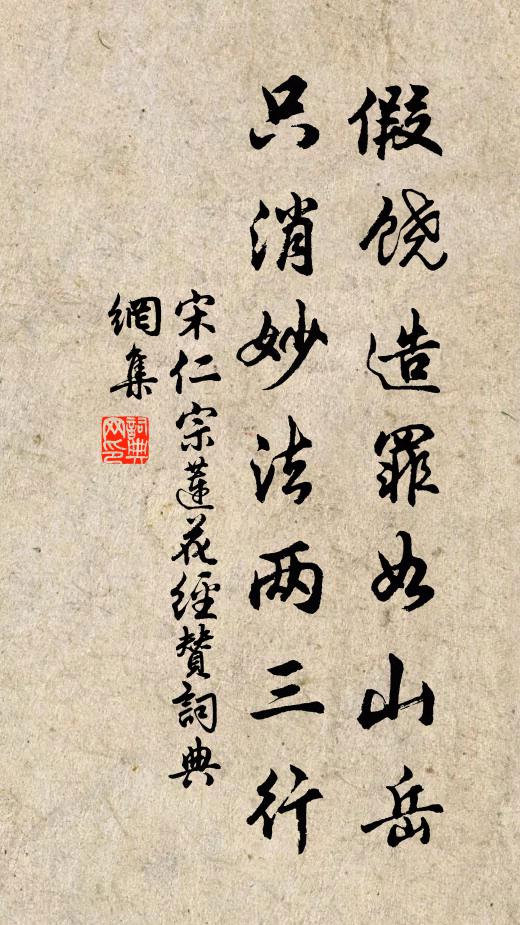 假饶造罪如山岳
只消妙法两三行
宋仁宗莲花經賛詞典
網集
詞典
网印